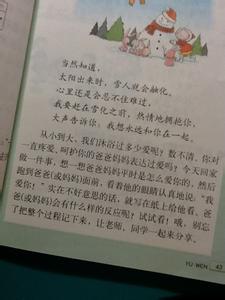 当然知道，
太阳出来时，雪人就会融化。
心里还是会忍不住难过，
我要赶在雪化之前，热情地拥抱你，
大声告诉你，我想永远和你在一起。
从小到大，我们沐浴过多少爱呢？数不清。你对
一直疼爱、呵护你的爸爸妈妈表达过爱吗？今天回家
做一件事，想一想爸爸妈妈平时是怎么爱你的，然后
跑到爸爸(或妈妈)面前，看着他的眼睛认真地说：“我
爱你！”实在不好意思的话，就写在纸上给他看。爸
爸(或妈妈)会有什么样的反应呢？试试看！哦，别忘
了把整个过程记下来，让老师、同学一起来分享。
YU WEN 43